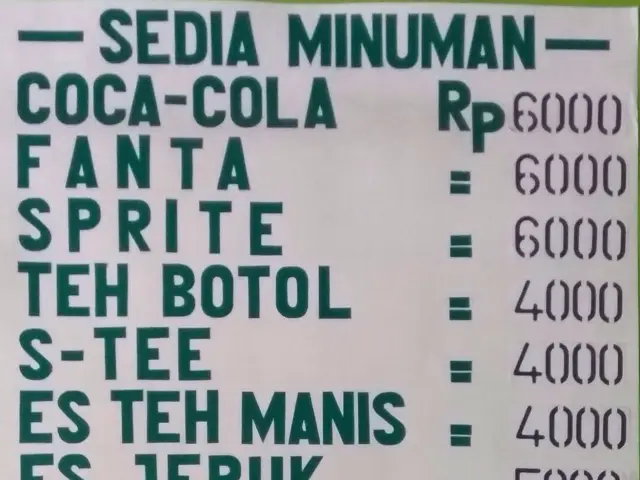 — SEDIA MINUMAN —
COCA-COLA Rp 6000
FANTA = 6000
SPRITE = 6000
TEH BOTOL = 4000
S-TEE = 4000
ES TEH MANIS = 4000
ES JERUK 5000